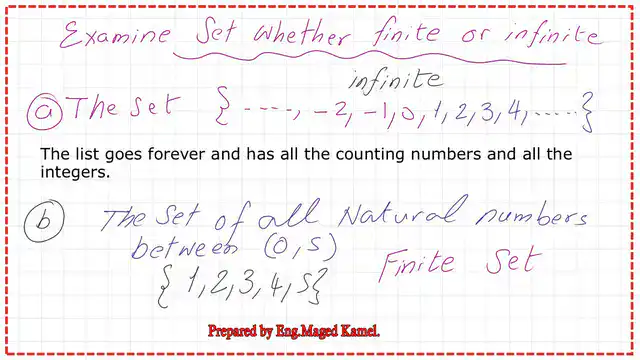 Examine Set whether finite or infinite
infinite
a The set { ----, -2, -1, 0, 1, 2, 3, 4, ..... }
The list goes forever and has all the counting numbers and all the
integers.
b The set of all Natural numbers
between (0, 5)
Finite Set
{ 1, 2, 3, 4, 5 }
Prepared by Eng.Maged Kamel.